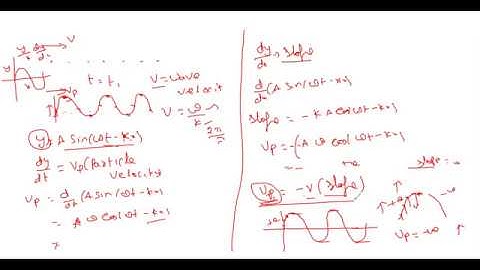 y
dy/dx
V
t = t₁
V = wave velocit
Vp
V = ω/k
2π
y = A Sin(ωt - kx)
dy/dt = Vp (Particle Velocity
Vp = d/dt (A Sin(ωt - kx)
= A ω Cos(ωt - kx)
dy/dx = slope
d/dx (A Sin(ωt - kx)
slope = - K A Cos(ωt - kx)
Vp = -(-A ω Cos(ωt - kx)
slope =
Vp = -V (slope)
Vp = -ve